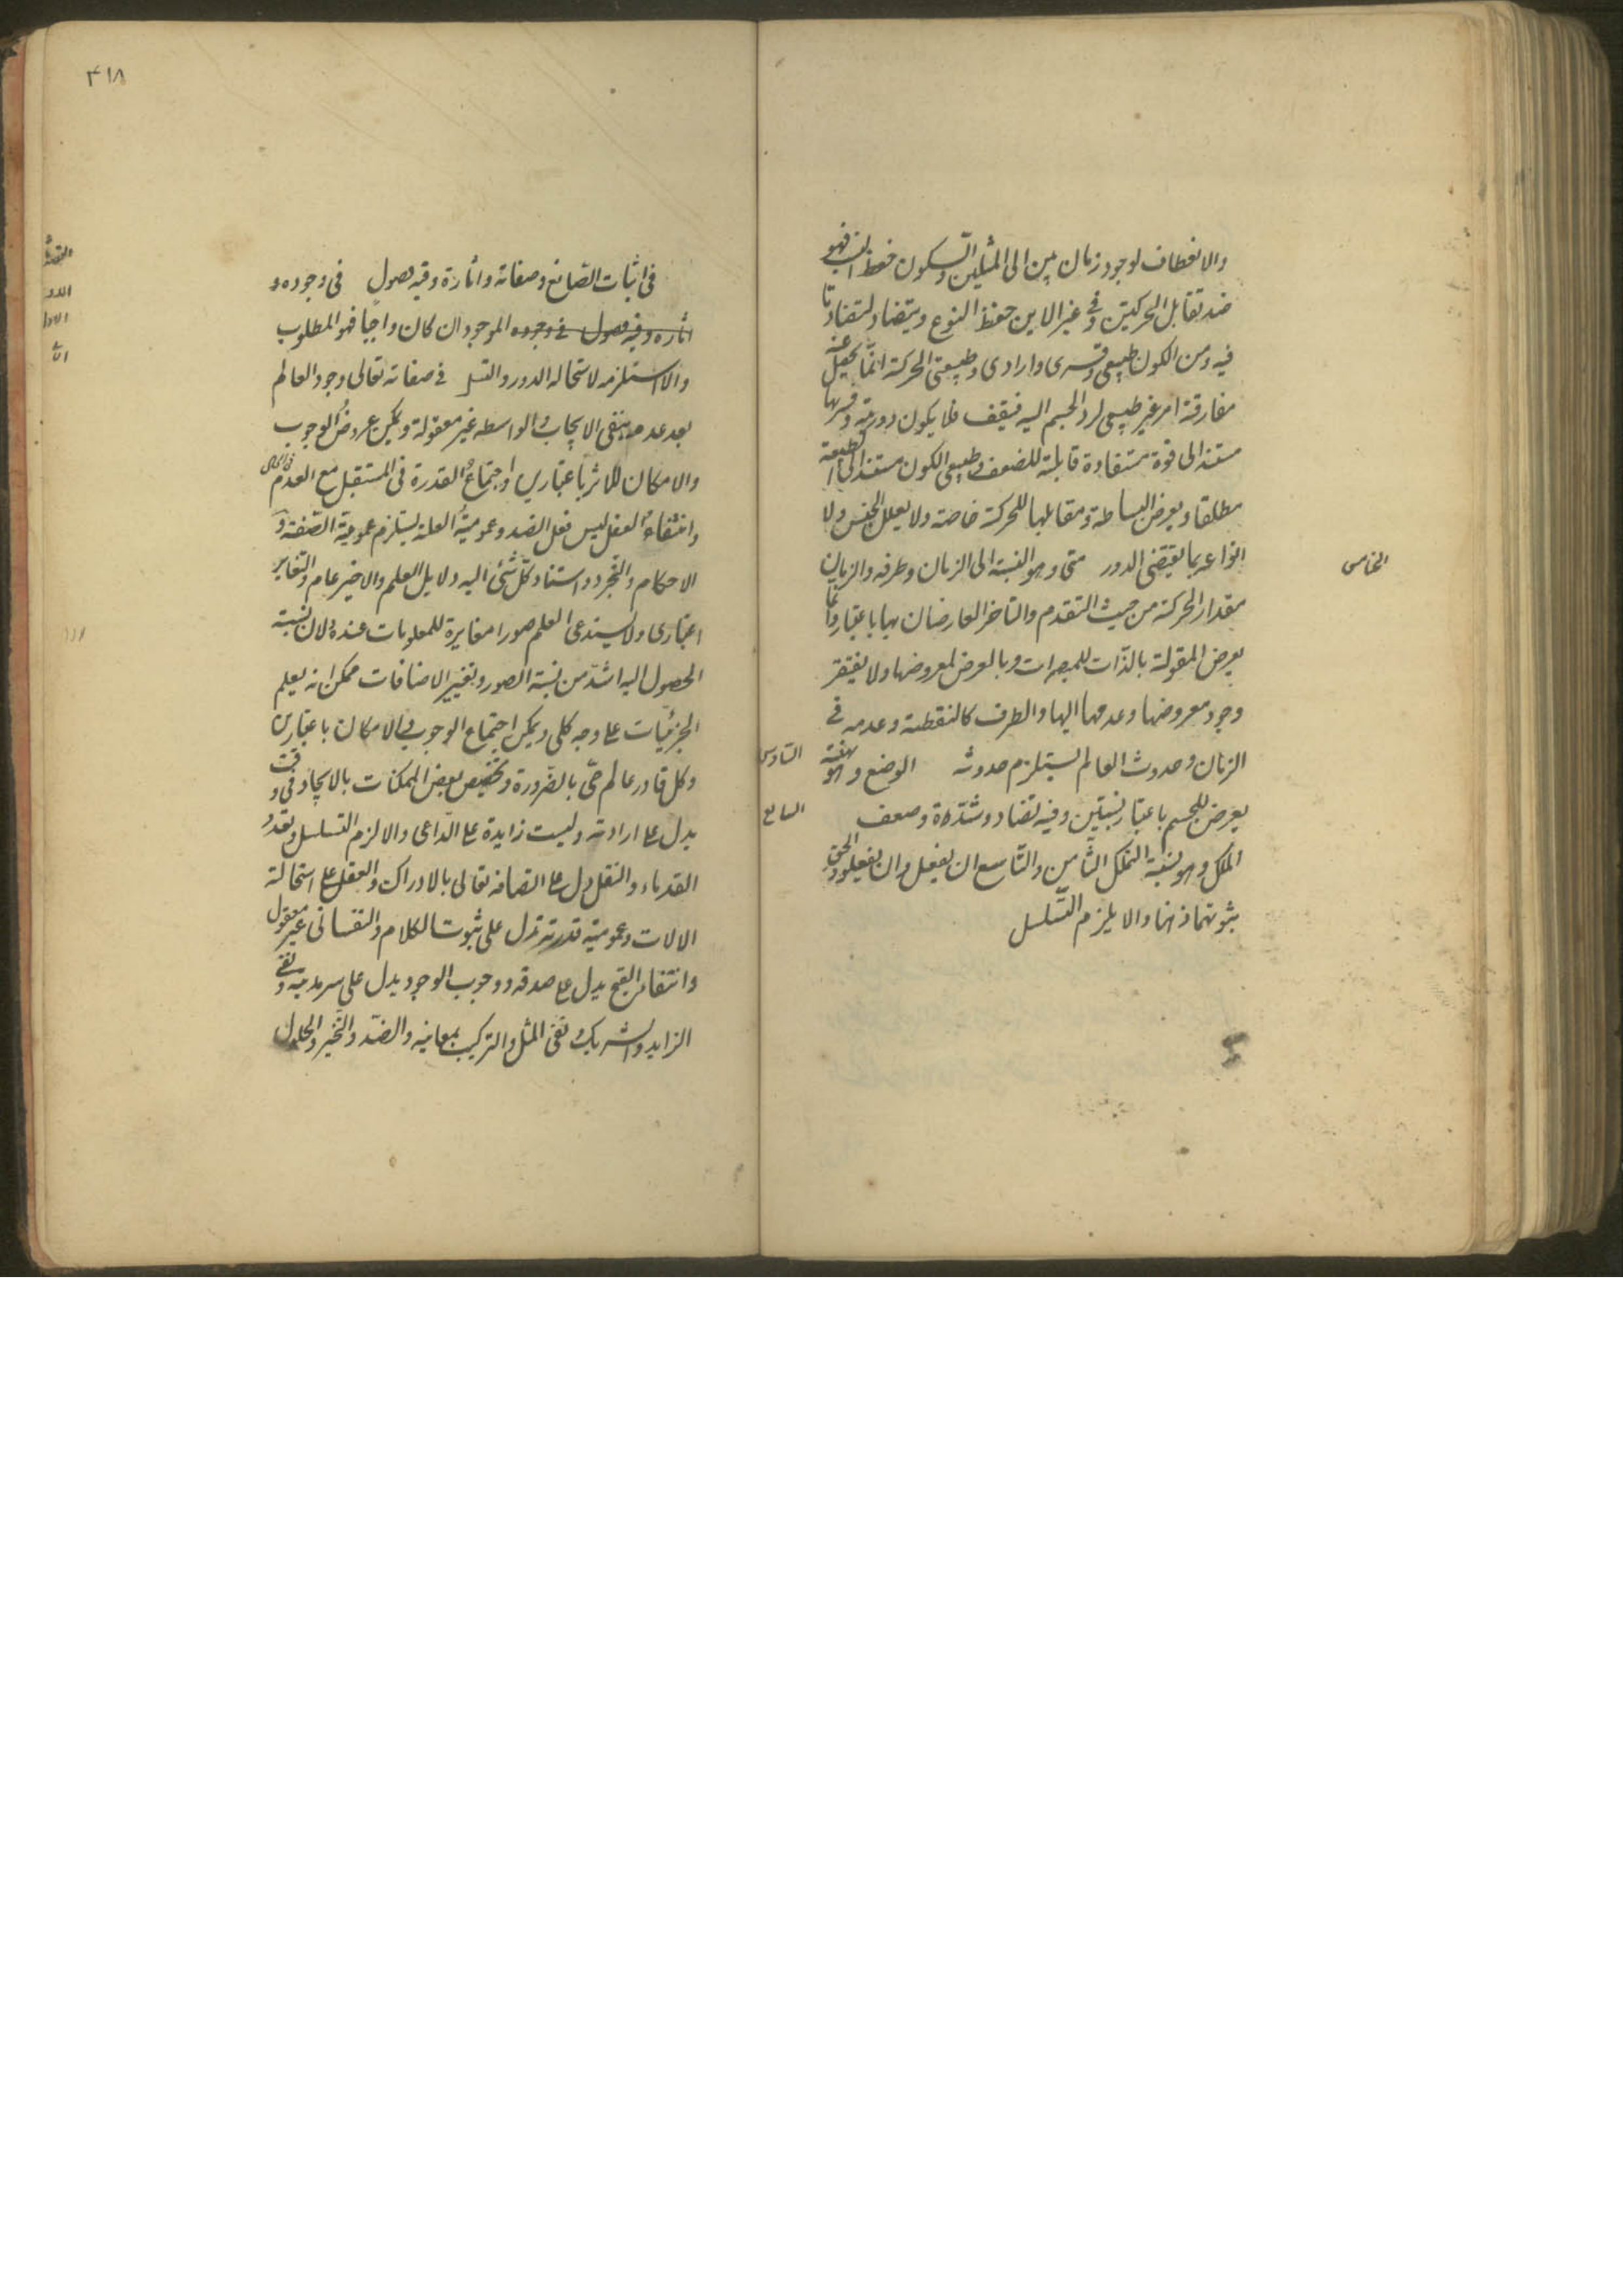 والانعطاف لوجود زمان بين الى المثلين والسكون حفظ النسب فهو
ضد تقابل الحركتين وفي غير الاين حفظ النوع ويتضاد لتضاد ما
فيه ومن الكون طبيعي وقسرى وارادى وطبيعي الحركة انما يحصل عند
مفارقة امر غير طبيعي ليرد الجسم اليه فيقف فلا يكون دورية وقسريها
مستند الى قوة مستفادة قابلة للضعف وطبيعي الكون مستند الى الطبيعة
مطلقا ويعرض البساطة ومقابلها للحركة خاصة ولا يعلل الجنس ولا
انواعه بما يقتضى الدور متى وهو النسبة الى الزمان وطرفه والزمان
الخامس
مقدار الحركة من حيث التقدم والتاخر العارضان لها باعتبار وانما
يعرض المقولة بالذات للمتغيرات وبالعرض لمعروضها ولا يفتقر
وجود معروضها وعدمها اليها والطرف كالنقطة وعدمه في
الزمان وحدوث العالم يستلزم حدوثه الوضع وهو هيئة
السادس
يعرض للجسم باعتبار نسبتين وفيه تضاد وشدة وضعف
السابع
الملك وهو نسبة التملك الثامن والتاسع ان يفعل وان ينفعل والحق
ثبوتهما ذهنا والا يلزم التسلسل
٣١٨
في اثبات الصانع وصفاته واثاره وفيه فصول في وجوده و
اثاره وفيه فصول في وجوده الموجود ان كان واجبا فهو المطلوب
والا استلزمه لاستحالة الدور والتسلسل في صفاته تعالى وجود العالم
بعد عدمه ينفى الايجاب والواسطه غير معقولة ويمكن عروض الوجوب
والامكان للاثر باعتبارين واجتماع القدرة في المستقبل مع العدم في الحال
وانتفاء الفعل ليس فعل الضد وعمومية العلة يستلزم عمومية الصفة و
الاحكام والتجرد واستناد كل شئ اليه دلايل العلم والاخير عام والتغاير
اعتبارى ولا يستدعى العلم صورا مغايرة للمعلومات عنده لان نسبة
الحصول اليه اشد من نسبة الصور وتغير الاضافات ممكن انه يعلم
الجزئيات على وجه كلي ويمكن اجتماع الوجوب والامكان باعتبارين
وكل قادر عالم حي بالضرورة وتخصيص بعض الممكنات بالايجاد في وقت
يدل على ارادته وليست زايدة على الداعى والا لزم التسلسل وتعدد
القدماء والنقل دل على اتصافه تعالى بالادراك والعقل على استحالة
الالات وعمومية قدرته تدل على ثبوت الكلام والنفسانى غير معقول
وانتفاء القبح يدل على صدقه ووجوب الوجود يدل على سرمديته ونفى
الزايد والشريك ونفى المثل والتركيب بمعانيه والضد والتحيز والحلول